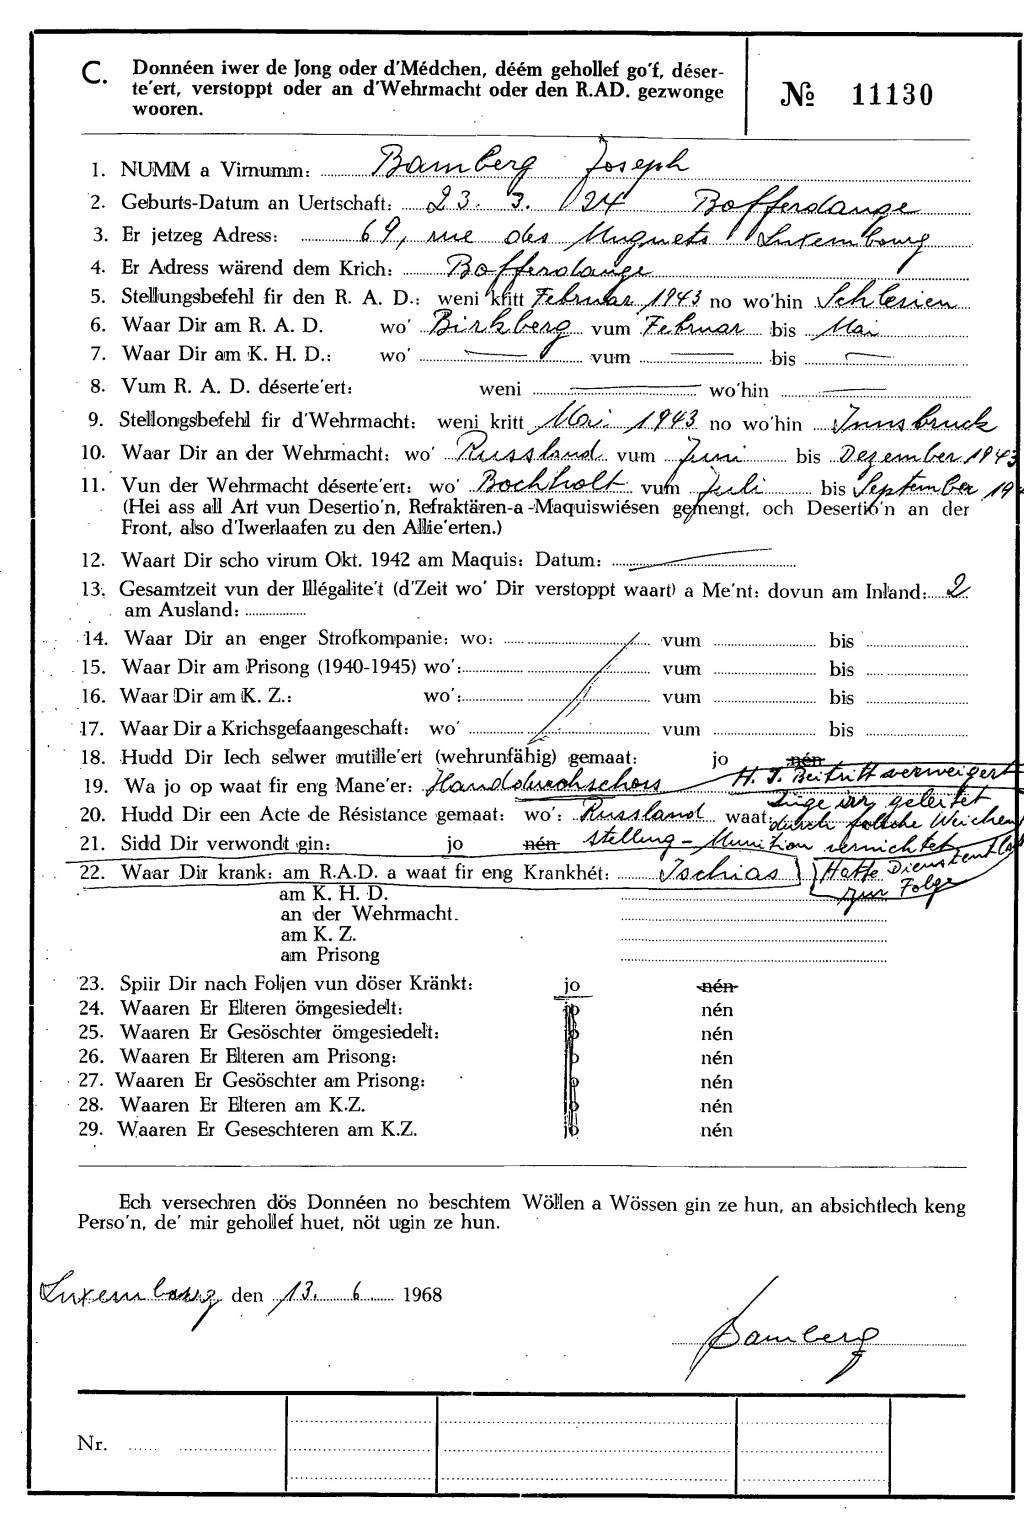 C. Donnéen iwer de Jong oder d'Médchen, déém gehollef go'f, déser-
te'ert, verstoppt oder an d'Wehrmacht oder den R.AD. gezwonge
wooren.
№ 11130
1. NUMM a Virnumm: Bamberg Joseph
2. Geburts-Datum an Uertschaft: 23. 3. 1924 Bofferdange
3. Er jetzeg Adress: 69, rue des Muguets Luxembourg
4. Er Adress wärend dem Krich: Bofferdange
5. Stellungsbefehl fir den R. A. D.: weni kritt Februar 1943 no wo'hin Schlesien
6. Waar Dir am R. A. D. wo' Birkberg vum Februar bis Mai
7. Waar Dir am K. H. D.: wo' — vum — bis —
8. Vum R. A. D. déserte'ert: weni — wo'hin —
9. Stellongsbefehl fir d'Wehrmacht: weni kritt Mai 1943 no wo'hin Innsbruck
10. Waar Dir an der Wehrmacht: wo' Russland vum Juni bis Dezember 1943
11. Vun der Wehrmacht déserte'ert: wo' Bochholt vum Juli bis September 19
(Hei ass all Art vun Desertio'n, Refraktären-a -Maquiswiésen gemengt, och Desertio'n an der
Front, also d'Iwerlaafen zu den Allie'erten.)
12. Waart Dir scho virum Okt. 1942 am Maquis: Datum:
13. Gesamtzeit vun der Illégalite't (d'Zeit wo' Dir verstoppt waart) a Me'nt: dovun am Inland: 2
am Ausland:
14. Waar Dir an enger Strofkompanie: wo: vum bis
15. Waar Dir am Prisong (1940-1945) wo': vum bis
16. Waar Dir am K. Z.: wo': vum bis
17. Waar Dir a Krichsgefaangeschaft: wo' vum bis
18. Hudd Dir Iech selwer mutille'ert (wehrunfähig) gemaat: jo nén
19. Wa jo op waat fir eng Mane'er: Handdurchschoss H. J. Beitritt verweigert
20. Hudd Dir een Acte de Résistance gemaat: wo': Russland waat: Züge irr geleitet
durch falsche Weichen
21. Sidd Dir verwondt gin: jo nén stellung - Munition vernichtet
22. Waar Dir krank: am R.A.D. a waat fir eng Krankhét: Ischias Hatte Dienstentla
zur Folge
am K. H. D.
an der Wehrmacht.
am K. Z.
am Prisong
23. Spiir Dir nach Foljen vun döser Kränkt: jo nén
24. Waaren Er Elteren ömgesiedelt: jo nén
25. Waaren Er Gesöschter ömgesiedelt: jo nén
26. Waaren Er Elteren am Prisong: jo nén
27. Waaren Er Gesöschter am Prisong: jo nén
28. Waaren Er Elteren am K.Z. jo nén
29. Waaren Er Geseschteren am K.Z. jo nén
Ech versechren dös Donnéen no beschtem Wöllen a Wössen gin ze hun, an absichtlech keng
Perso'n, de' mir gehollef huet, nöt ugin ze hun.
Luxembourg den 13. 6 1968
Bamberg
Nr.